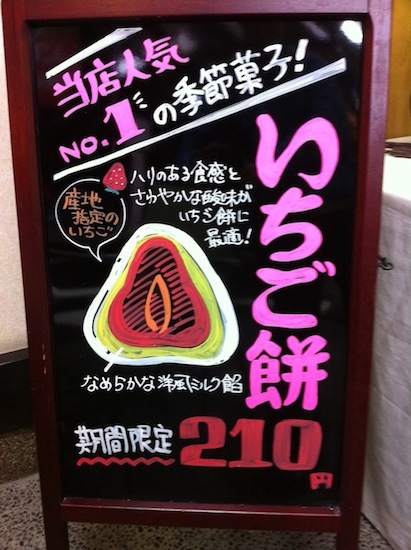 当店人気
NO.1の季節菓子!
いちご餅
ハリのある食感と
さわやかな酸味が
いちご餅に
最適!
産地
指定の
いちご
なめらかな洋風ミルク餡
期間限定 210円